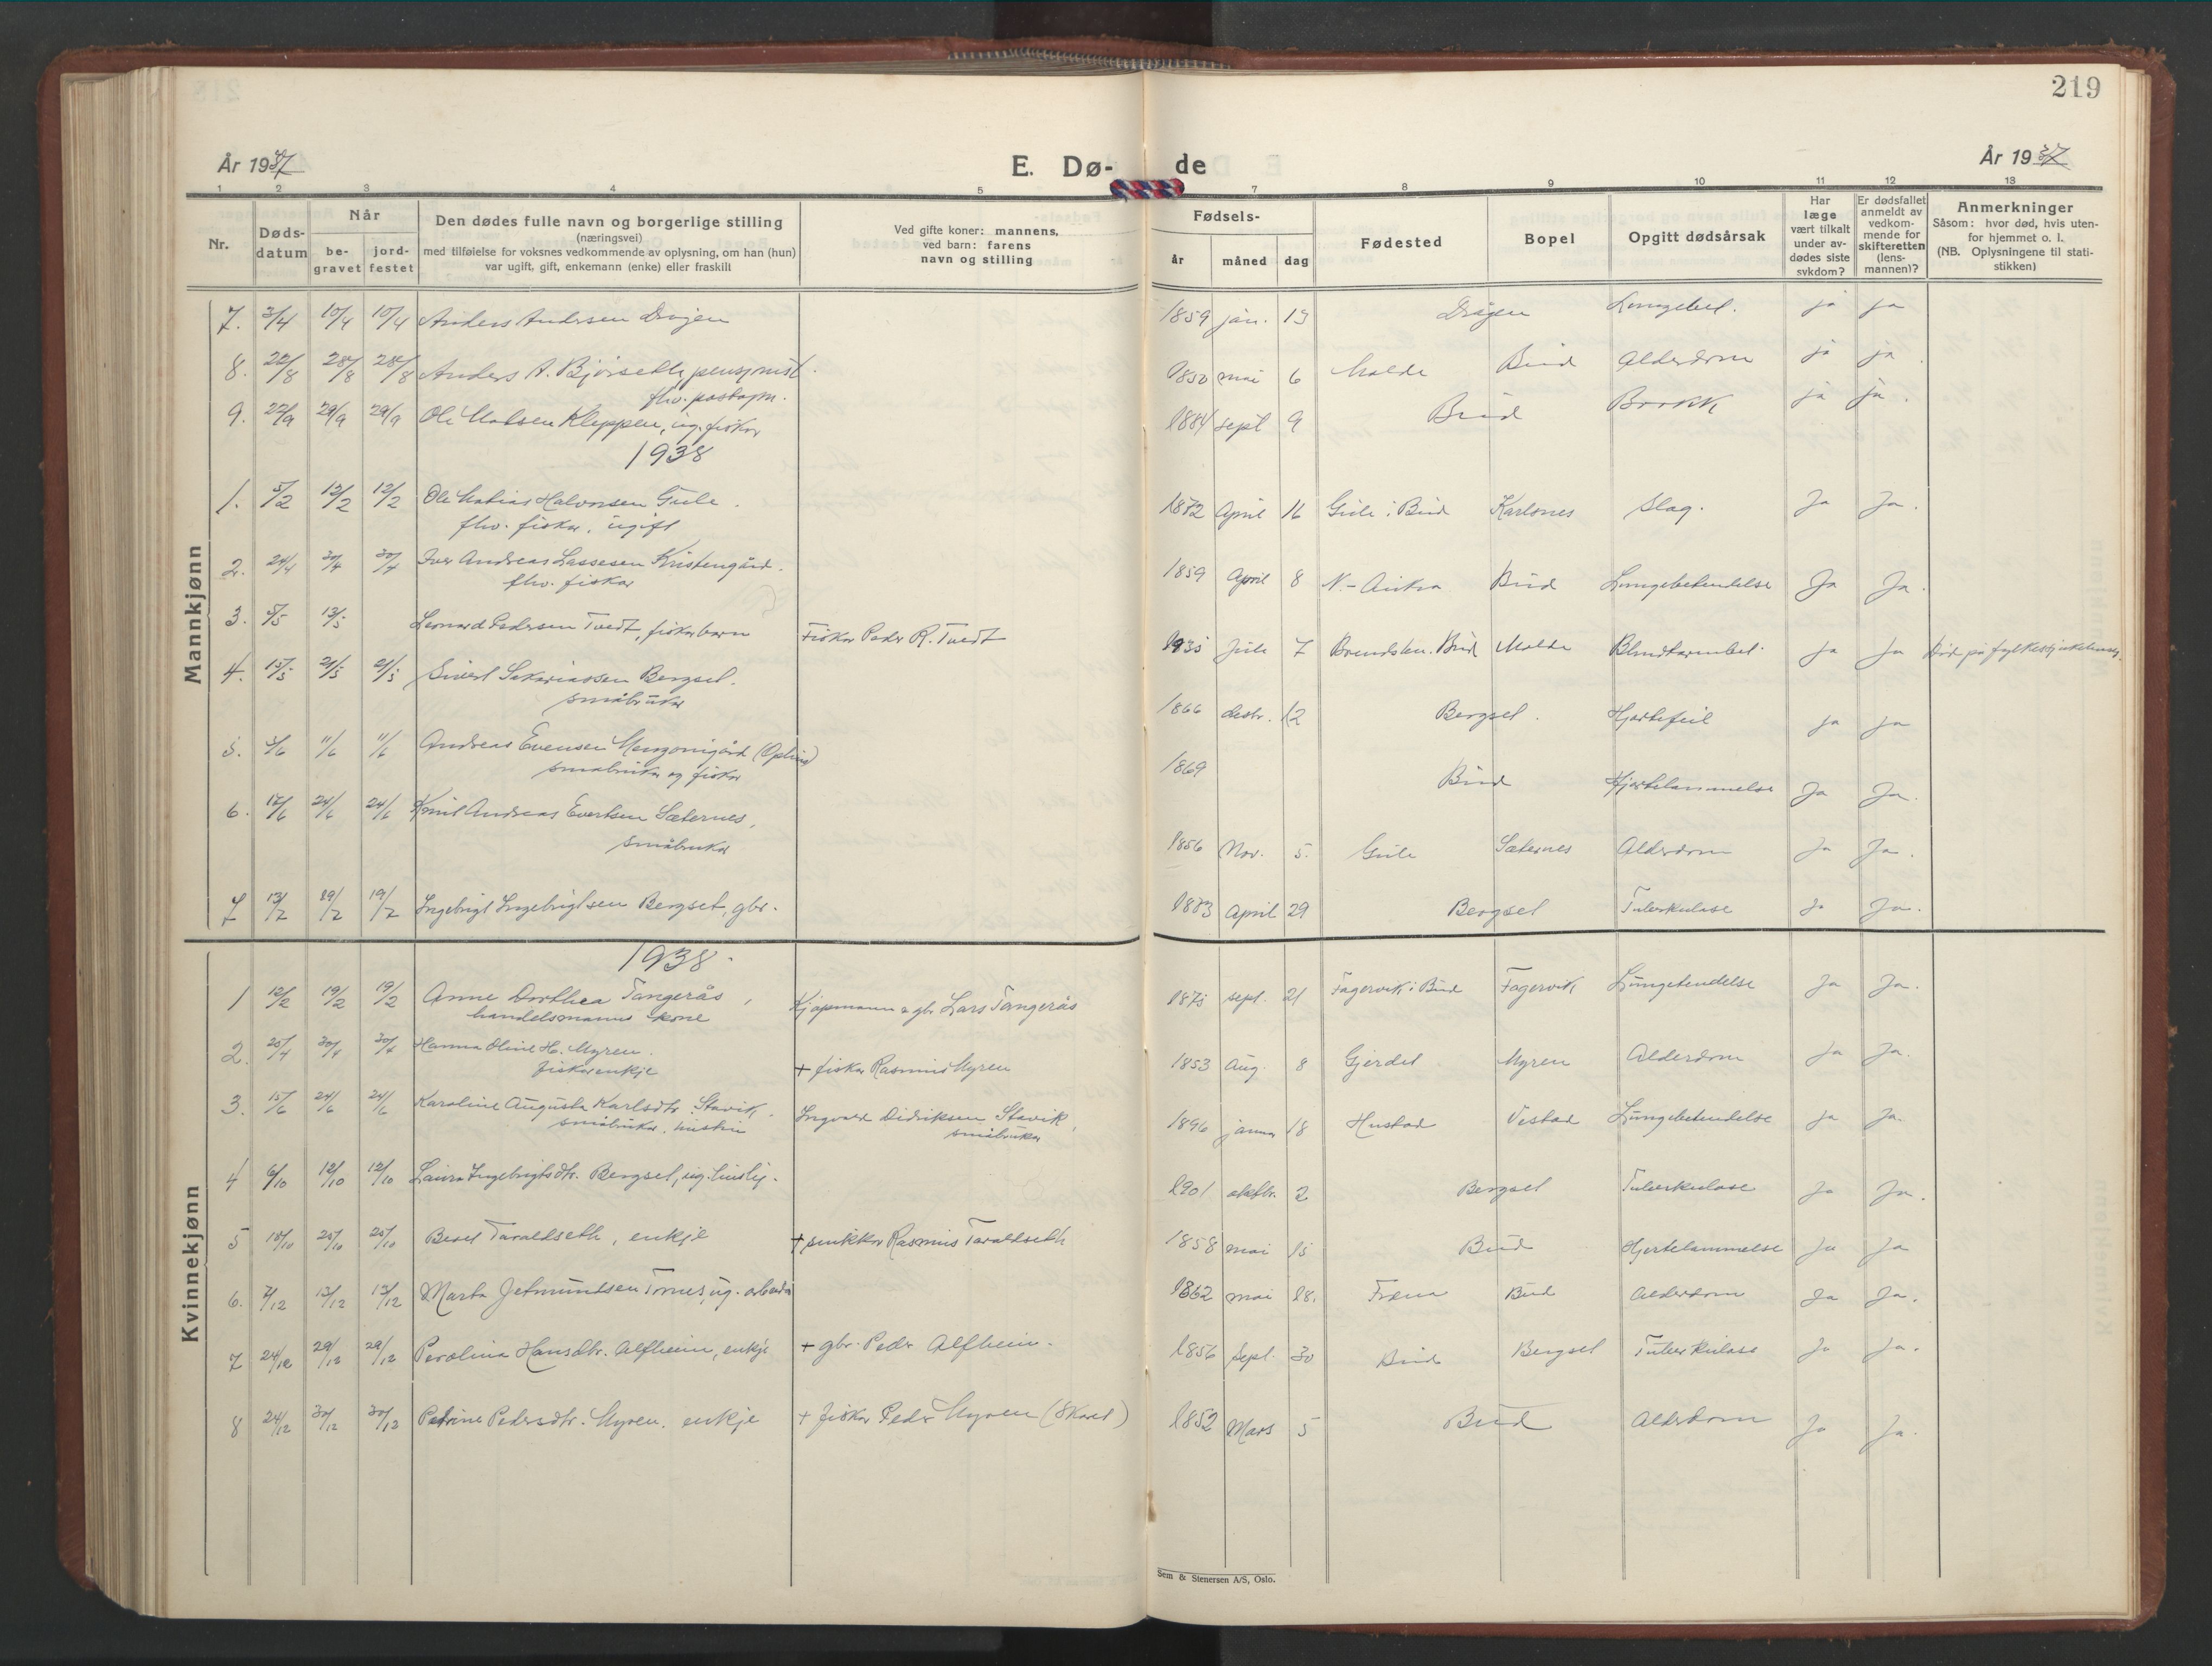 219
År 1937
E. Dø-
de
År 1937
1 2 3 4 5 7 8 9 10 11 12 13
Nr.
Døds-
datum
Når
be-
gravet
jord-
festet
Den dødes fulle navn og borgerlige stilling
(næringsvei)
med tilføielse for voksnes vedkommende av oplysning, om han (hun)
var ugift, gift, enkemann (enke) eller fraskilt
Ved gifte koner: mannens,
ved barn: farens
navn og stilling
Fødsels-
år
måned
dag
Fødested
Bopel
Opgitt dødsårsak
Har
læge
vært tilkalt
under av-
dødes siste
sykdom?
Er dødsfallet
anmeldt av
vedkom-
mende for
skifteretten
(lens-
mannen)?
Anmerkninger
Såsom: hvor død, hvis uten-
for hjemmet o. l.
(NB. Oplysningene til stati-
stikken)
Mannkjønn
7. 3/4 10/4 10/4 Anders Andersen Drågen 1859 jan. 13 Drågen Lungebet. ja ja
8. 22/8 28/8 28/8 Anders A. Bjørseth, pensjonist. 1850 mai 6 Molde Bud Alderdom ja ja.
fhv. postopn.
9. 22/9 29/9 29/9 Ole Matsen Kleppen, ug. fisker 1884 sept 9 Bud Brokk ja ja.
1938
1. 5/2 12/2 12/2 Ole Matias Halvorsen Gule. 1872 April 16 Gule i Bud Karlsnes Slag. Ja Ja.
fhv. fisker, ugift
2. 24/4 30/4 30/4 Iver Andreas Lassesen Kristengård. 1859 April 8 N.-Aukra Bud Lungebetendelse Ja Ja.
fhv. fisker
3. 5/5 13/5 Leonard Pedersen Tvedt, fiskerbarn Fisker Peder R. Tvedt 1935 Juli 7 Bud Molde Blindtarmbet. Ja Ja Død på
4. 15/5 21/5 21/5 Sivert Sakariassen Bergset. 1866 desbr. 12 Bergset. Hjertefeil ja ja
småbruker
5. 5/6 11/6 11/6 Andreas Evensen 1869 Bud Hjertelammelse Ja Ja.
småbruker og fisker
6. 17/6 24/6 24/6 Knut Andreas Evertsen Sæternes, 1856 Nov. 5. Gule Sæternes Alderdom Ja Ja.
småbruker
7 13/7 19/7 19/7 Ingebrigt Ingebrigtsen Bergset, gbr. 1883 April 29 Bergset Tuberkulose Ja Ja.
Kvinnekjønn
1938.
1 12/2 19/2 19/2 Anne Dorthea Tangerås, Kjøpmann & gbr Lars Tangerås 1875 sept. 21 Fagervik i Bud Fagervik Lungetendelse Ja Ja.
handelsmanns kone
2. 25/4 30/4 30/4 Hanna Oline H. Myren. + fisker Rasmus Myren 1853 Aug. 8 Gjerdet Myren Alderdom Ja Ja.
fiskerenkje
3. 15/6 24/6 24/6 Karoline Augusta Karlsdtr. Stavik. Ingvald Didriksen Stavik, 1896 januar 18 Hustad Vestad Lungebetendelse Ja Ja.
småbruker. hustru småbruker
4 6/10 12/10 12/10 Laura Ingebrigtsdtr. Bergset, ug. huslig. 1901 oktbr. 2 Bergset Tuberkulose Ja Ja.
5 18/10 25/10 25/10 Beret Taraldseth, enkje + snikker Rasmus Taraldseth 1858 mai 15 Bud Hjertelammelse Ja Ja
6. 7/12 13/12 13/12 Marta Jetmundsen Tornes, ug. 1862 mai 18. Fræna Bud Alderdom Ja Ja.
7 24/12 29/12 29/12 Perolina Hansdtr. Alfheim, enkje + gbr. Peder Alfheim. 1856 Sept. 30 Bud Bergset Tuberkulose Ja Ja.
8 24/12 30/12 30/12 Petrine Pedersdtr. Myren. enkje + fisker Peder Myren (Skaret) 1852 Mars 5 Bud Alderdom Ja Ja.
Sem & Stenersen A/S, Oslo.